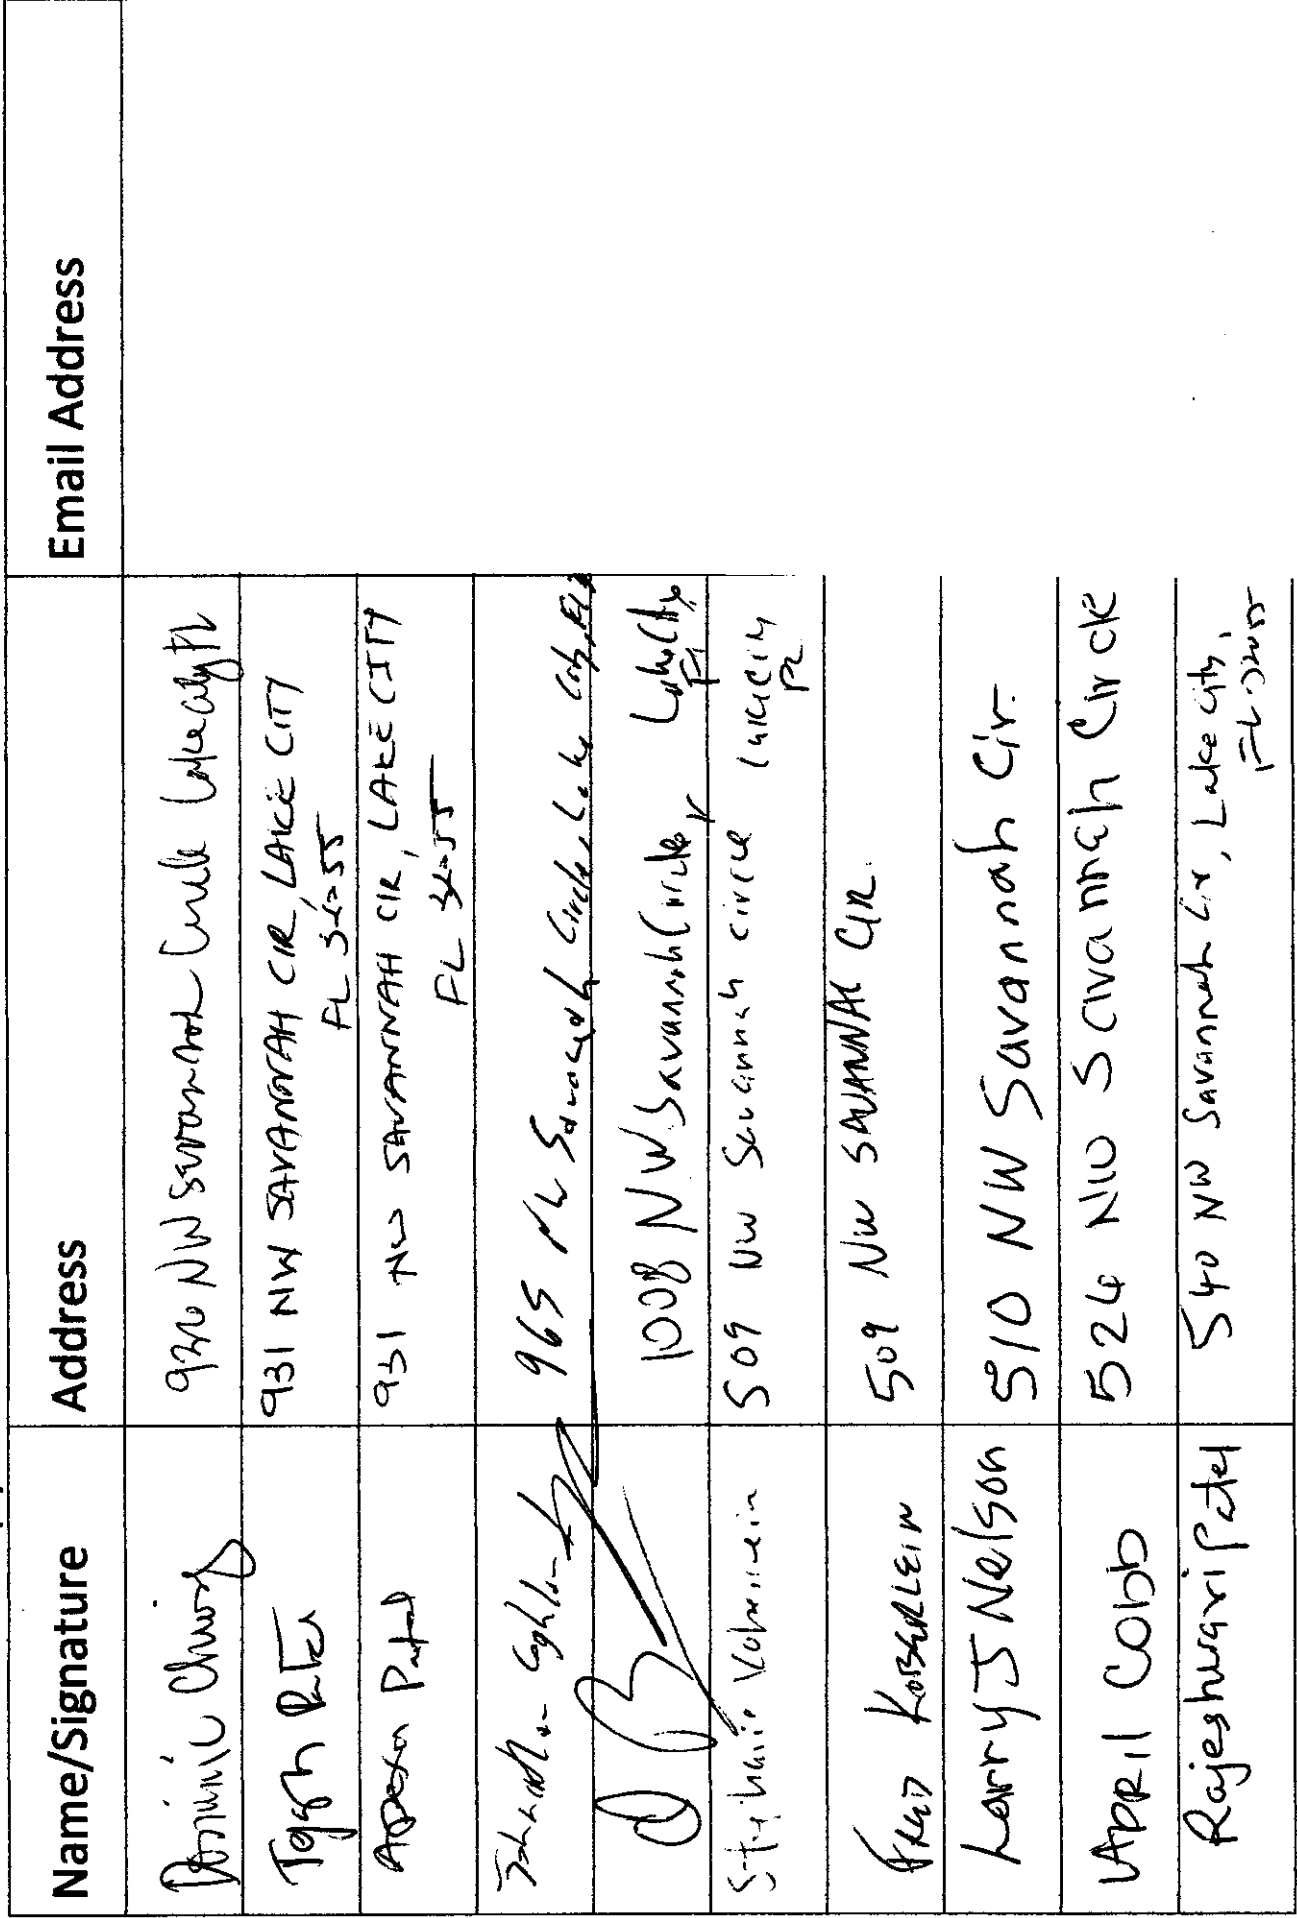 Name/Signature Address Email Address
Dominic 920 NW Savannah Circle Lake City FL
931 NW SAVANNAH CIR, LAKE CITY
FL 32055
Patel 931 NW SAVANNAH CIR, LAKE CITY
FL 32055
965 NW Savannah Circle, Lake City, FL
1008 NW Savannah Circle, Lake City
Fl
Stephanie Koberlein 509 NW Savannah circle Lake City
FL
FRED KOBERLEIN 509 NW SAVANNAH CIR.
Larry J Nelson 510 NW Savannah Cir.
APRIL Cobb 524 NW Savannah Circle
Rajeshwari Patel 540 NW Savannah Cir, Lake City,
FL 32055